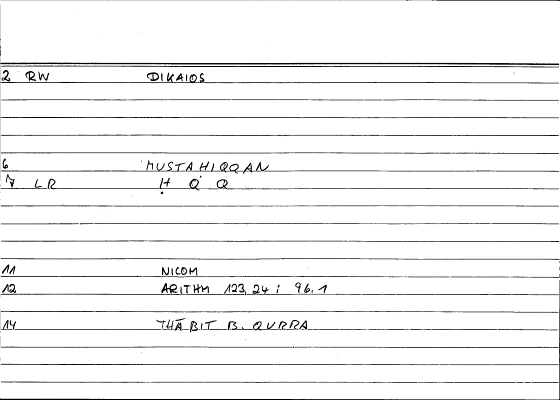 2 RW DIKAIOS
6 MUSTAHIQQAN
7 LR Ḥ Q Q
11 NICOM
12 ARITHM 123,24 : 96.1
14 THĀBIT B. QURRA